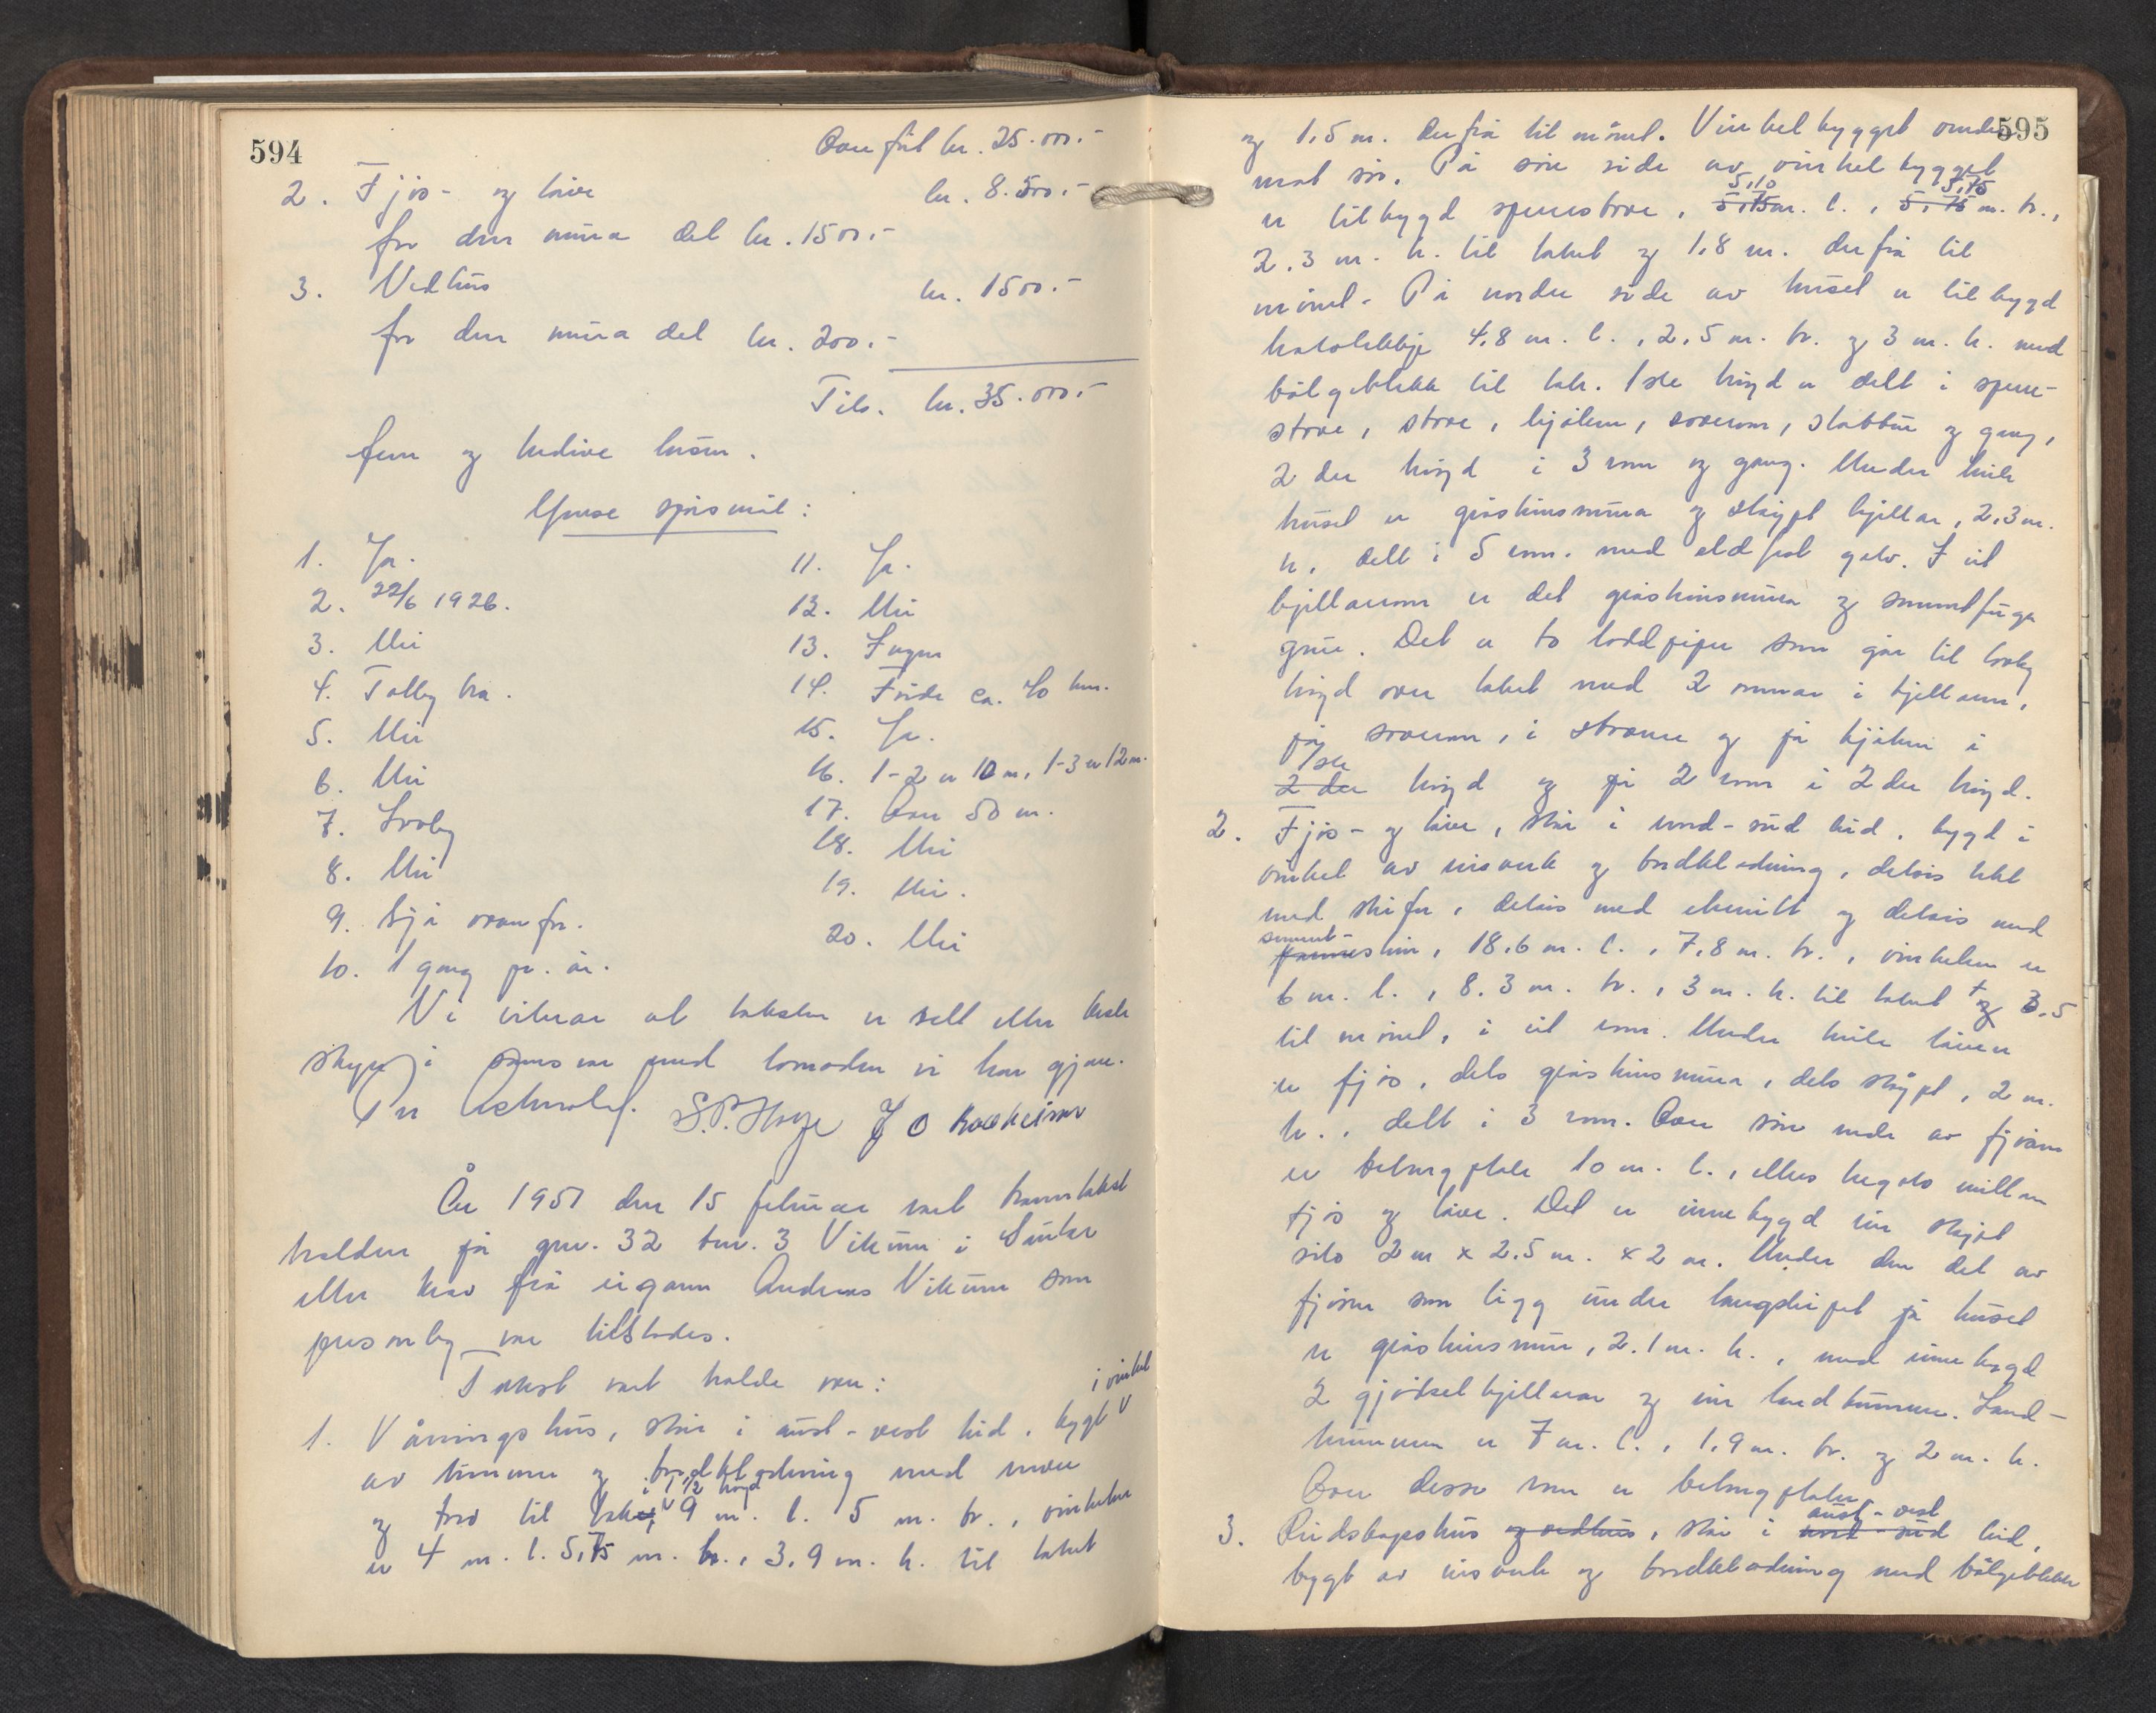 594
Overført kr. 25.000.-
2. Fjøs- og løve kr. 8.500.-
for den mura del kr. 1500.-
3. Vedhus kr. 1500.-
for den mura del kr. 200.-
Tils. kr. 35.000.-
fem og tredive tusen.
Ymse spørsmål:
1. Ja.
2. 22/6 1926.
3. Nei
4. Tolleg bra.
5. Nei
6. Nei
7. Lovleg
8. Nei
9. Sjå ovanfor.
10. 1 gong pr. år.
11. Ja.
12. Nei
13. Ingen
14. Førde ca. 40 km.
15. Ja.
16. 1-2 er 10 m, 1-3 er 12 m.
17. Over 50 m.
18. Nei
19. Nei.
20. Nei
Vi vitnar at taksten er sett etter beste
skyn i samsvar med lovnaden vi har gjeve.
S. P. Høyt J O
År 1951 den 15 februar vart branntakst
halden på gnr. 32 bnr. 3 Vikum i Jølster
etter krav frå eigaren Andreas Vikum som
personleg var tilstades.
Takst vart halde over:
1. Våningshus, står i aust-vest leid, bygt i vinkel
av tømmer og bordkledning med never
og torv til tak, i 1 1/2 høgd 9 m. l. 5 m. br., vinkelen
er 4 m. l. 5,75 m. br., 3,9 m. h. til taket
595
og 1,5 m. derfrå til mønet. Vinkelbygget vender
mot sør. På søre side av vinkelbygget
er tilbygd sperrestove, 5,75 5,10 m. l., 5,75 3,75 m. br.,
2.3 m. h. til taket og 1,8 m. derfrå til
mønet. På nordre side av huset er tilbygd
4,8 m. l., 2,5 m. br. og 3 m. h. med
bølgeblekk til tak. 1ste høgd er delt i sperre-
stove, stove, kjøken, soverom, stabbur og gang,
2 der høgd i 3 rom og gang. Under heile
huset er gråsteinsmura og støypt kjellar, 2,3 m.
h, delt i 5 rom. med eldfast golv. I eit
kjellarrom er det gråsteinsmura og sementfuga
grue. Det er to loddpiper som går til lovleg
høgd over taket med 2 omnar i kjellaren,
på soverom, i stovene og på kjøken i
2 der 1ste høgd og på 2 rom i 2 der høgd.
2. Fjøs- og løve, står i nord-sud leid, bygd i
vinkel av reisverk og bordkledning, delvis tekt
med skifer, delvis med eternitt og delvis med
sement-stein, 18,6 m. l., 7,8 m. br., vinkelen er
6 m. l., 8.3 m. br., 3 m. h. til taket + og 3.5
til mønet, i eit rom. Under heile løven
er fjøs, dels gråsteinsmura, dels støypt, 2 m.
h., delt i 3 rom. Over søre ende av fjøsen
er betongplate 10 m. l., ellers tregolv millom
fjøs og løve. Det er innebygd ein støypt
silo 2 m x 2.5 m. x 2 m. Under den del av
fjøsen som ligg under langskipet på huset
er gråsteinsmur, 2.1 m. h., med innebygd
2 gjødselkjellarar og ein landkummer. Land-
kummen er 7 m. l., 1,9 m. br. og 2 m. h.
Over desse rom er betongplater
3. Reidskapshus og vedhus, står i nord-sud aust-vest leid,
bygt av reisverk og bordkledning med bølgeblekk